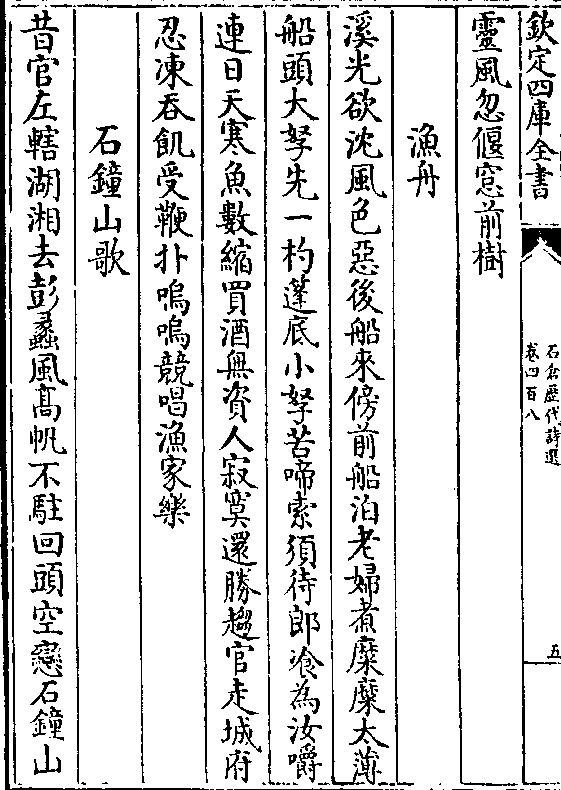 欽定四庫全書
石倉歷代詩選
卷四百八
五
靈風忽偃窓前樹
漁舟
溪光欲沈風色惡後船來傍前船泊老婦煮糜糜太薄
船頭大孥先一杓蓬底小孥苦啼索須待郎飡為汝嚼
連日天寒魚數縮買酒無資人寂寞還勝趨官走城府
忍凍吞飢受鞭扑嗚嗚競唱漁家樂
石鐘山歌
昔官左轄湖湘去彭蠡風髙帆不駐回頭空戀石鐘山